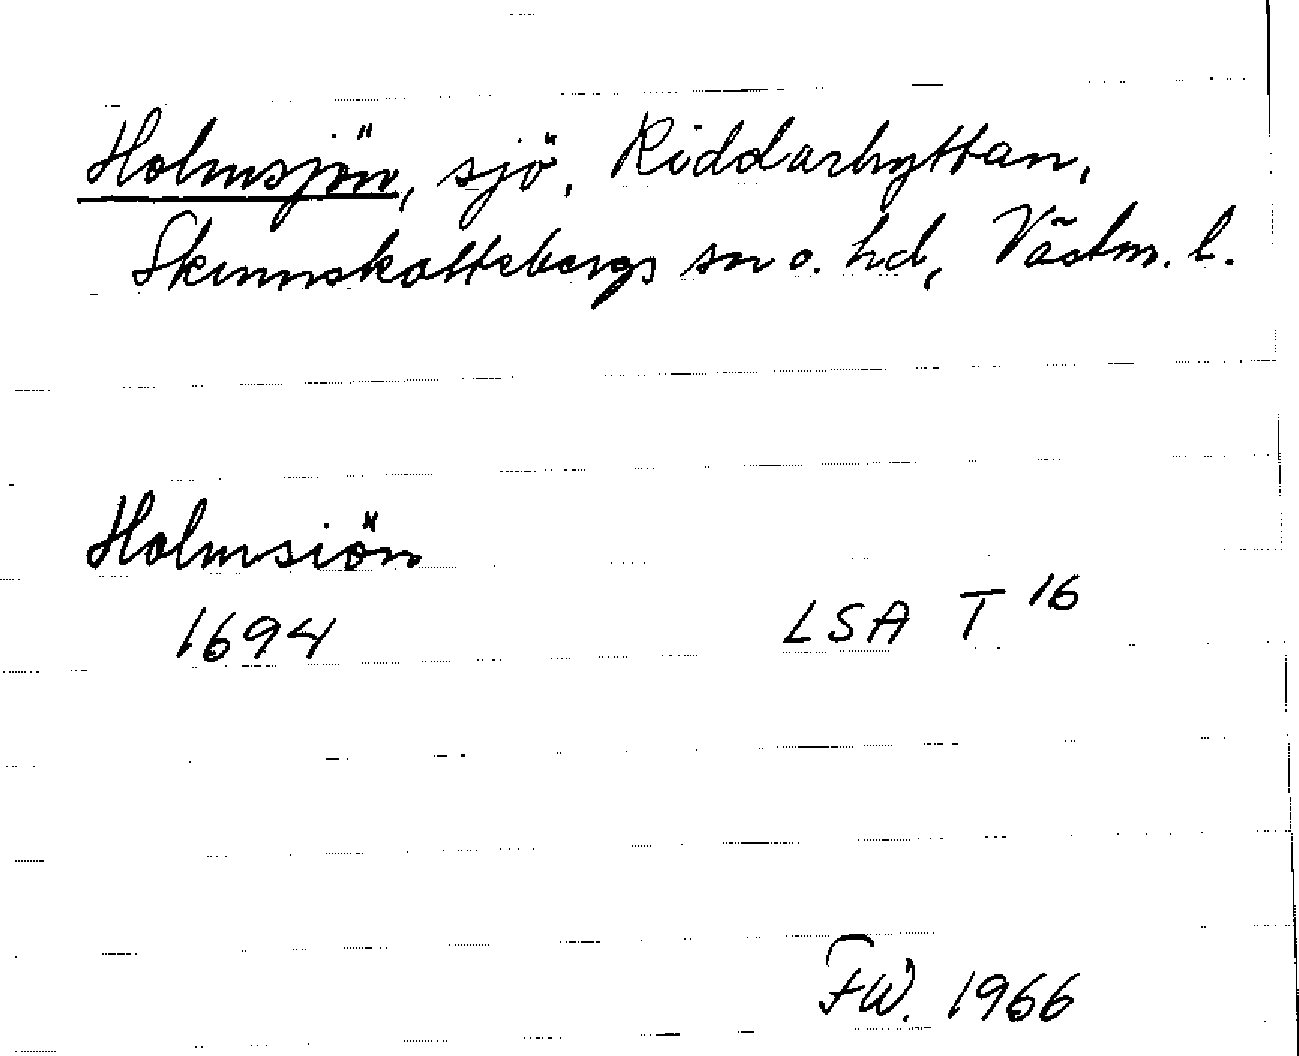 Holmsjön, sjö, Riddarhyttan,
Skinnskattebergs sn o. hd, Västm. l.
Holmsiön
1694 LSA T 16
FW. 1966